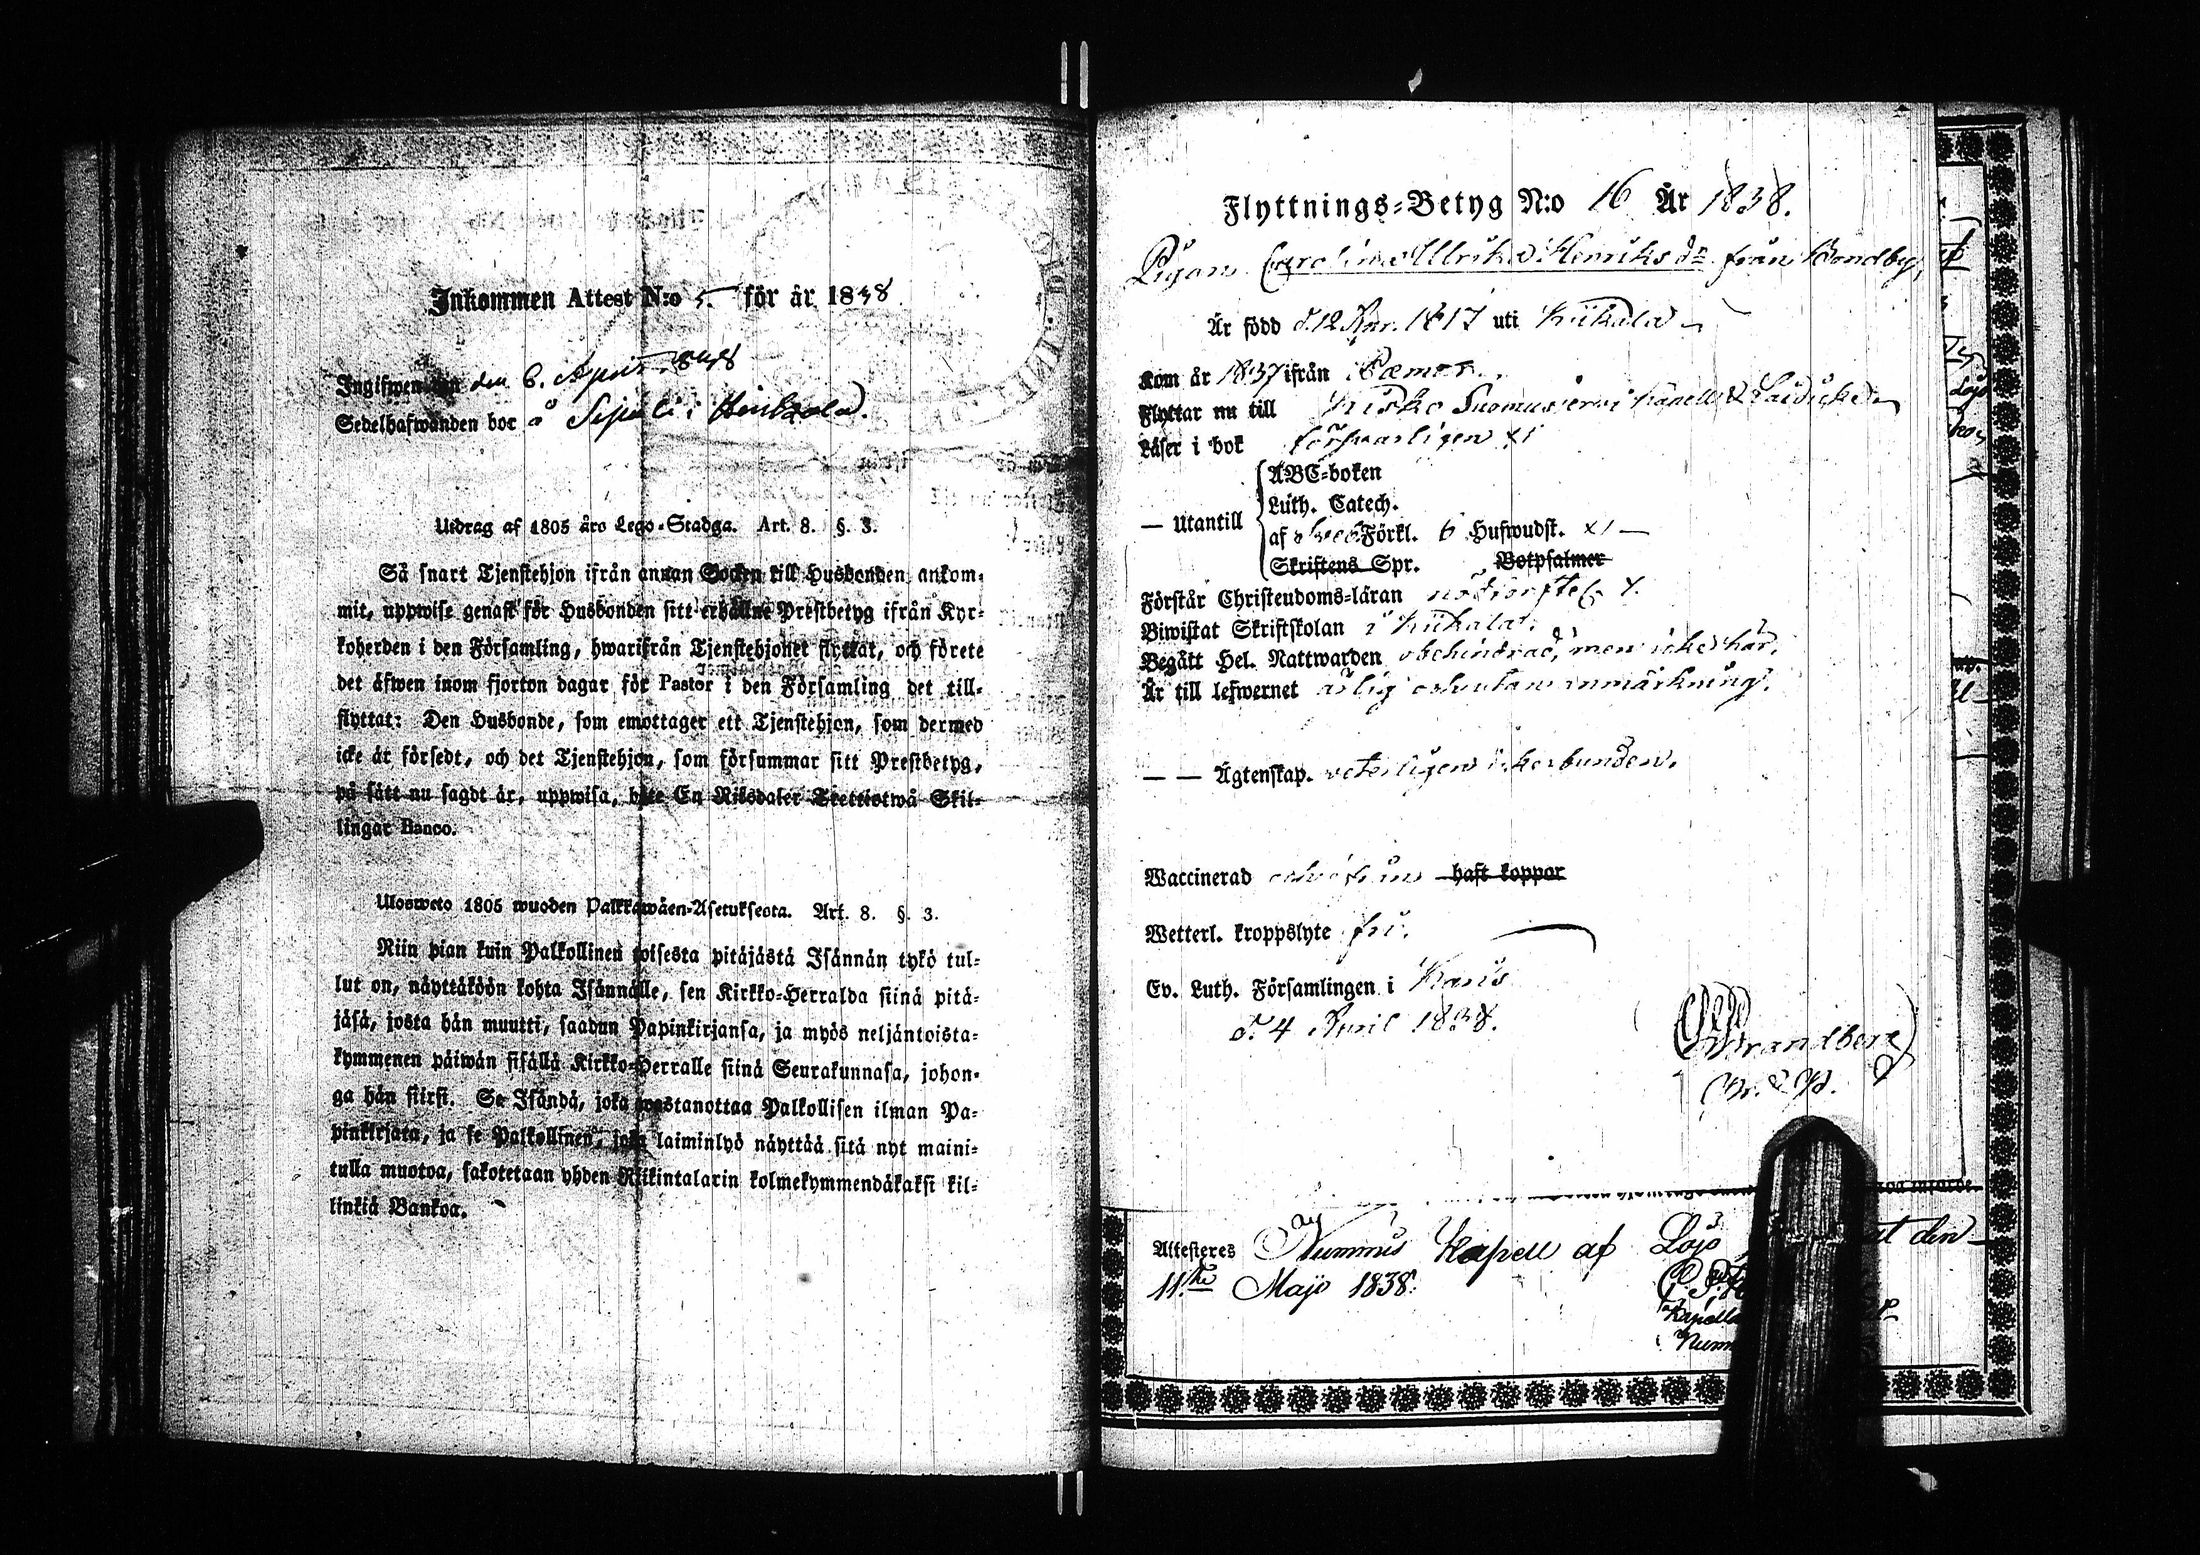 Inkommen Attest N:o 5. för år 1838
Ingifwen den 6. April 1838
Sedelhafwanden bor å Sepelä i
Utdrag af 1805 års Lego-Stadga. Art. 8. §. 3.
Så snart Tjenstehjon ifrån annan Socken till Husbonden ankom-
mit, uppwise genast för Husbonden sitt erhållne Prestbetyg ifrån Kyr-
koherden i den Församling, hwarifrån Tjenstehjonet flyttat, och förete
det äfwen inom fjorton dagar för Pastor i den Församling det till-
flyttat: Den Husbonde, som emottager ett Tjenstehjon, som dermed
icke är försedt, och det Tjenstehjon, som försummar sitt Prestbetyg,
på sätt nu sagdt är, uppwisa, böte En Riksdaler Trettiotwå Skil-
lingar Banco.
Ulosweto 1805 wuoden Palkkawäen-Asetuksesta. Art. 8. §. 3.
Niin pian kuin Palkollinen toisesta pitäjästä Isännän tykö tul-
lut on, näyttäköön kohta Isännälle, sen Kirkko-Herralda siinä pitä-
jäsä, josta hän muutti, saadun Papinkirjansa, ja myös neljäntoista-
kymmenen päiwän sisällä Kirkko-Herralle siinä Seurakunnasa, johon-
ga hän siirsi. Se Isändä, joka wastanottaa Palkollisen ilman Pa-
pinkirjata, ja se Palkollinen, joka laiminlyö näyttää sitä nyt maini-
tulla muotoa, sakotetaan yhden Riikintalarin kolmekymmendäkaksi kil-
linkiä Bankoa.
Flyttnings-Betyg N:o 16 År 1838.
Pigan Carolina Ulrika Henriksdr från Bondby,
Är född d. 12 1817 uti Kiikala
Kom år 1837 ifrån Pemar.
Flyttar nu till Kisko Suomusjerwi kapell &
Läser i bok försvarligen x1
— Utantill
ABC-boken
Luth. Catech.
af Förkl. 6 Hufwudst. x1 —
Skriftens Spr. Botpsalmer
Förstår Christendoms-läran nödtorftel.
Biwistat Skriftskolan i Kiikala.
Begått Hel. Nattwarden obehindrad, men icke här.
Är till lefwernet ärlig och utan anmärkning.
— — Ägtenskap. veterligen icke bunden.
Waccinerad haft koppor
Wetterl. kroppslyte fri.
Ev. Luth. Församlingen i Karis
d. 4 April 1838.
Strandberg
Attesteres Nummis Kapell af Lojo den
11:te Maji 1838.